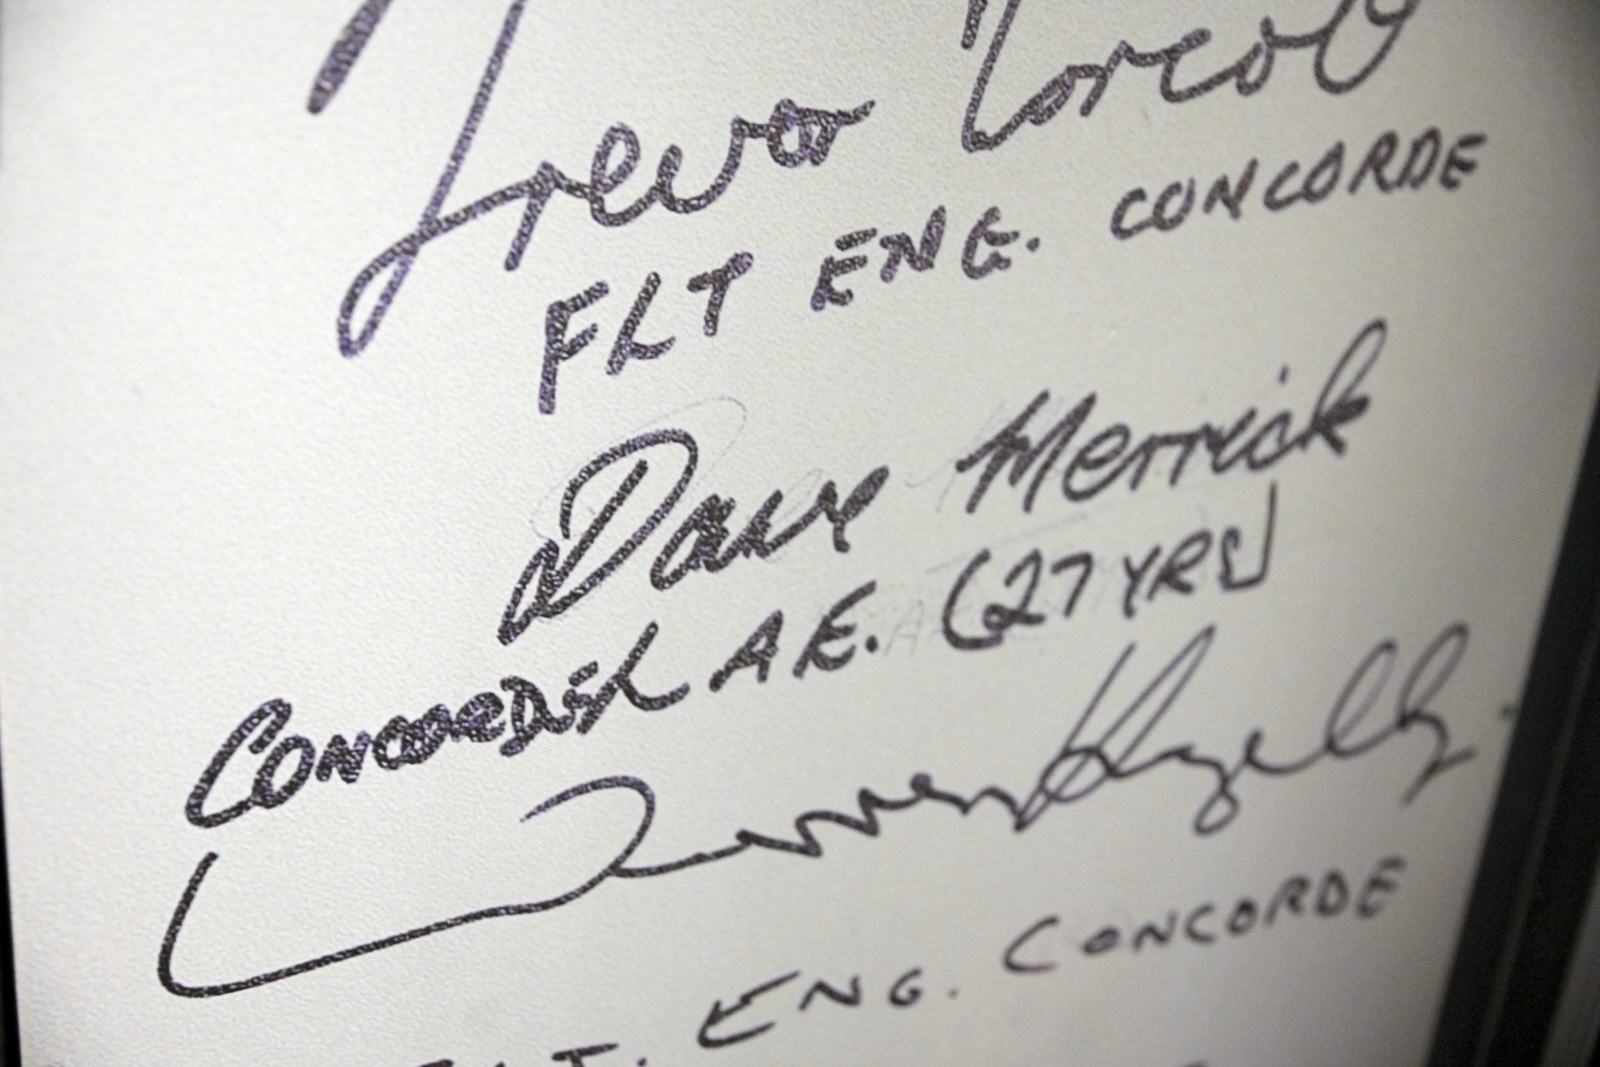 Trevor Norcott
FLT ENG. CONCORDE
Dave Merrick
CONCORDE A.E. (27 YRS)
FLT. ENG. CONCORDE